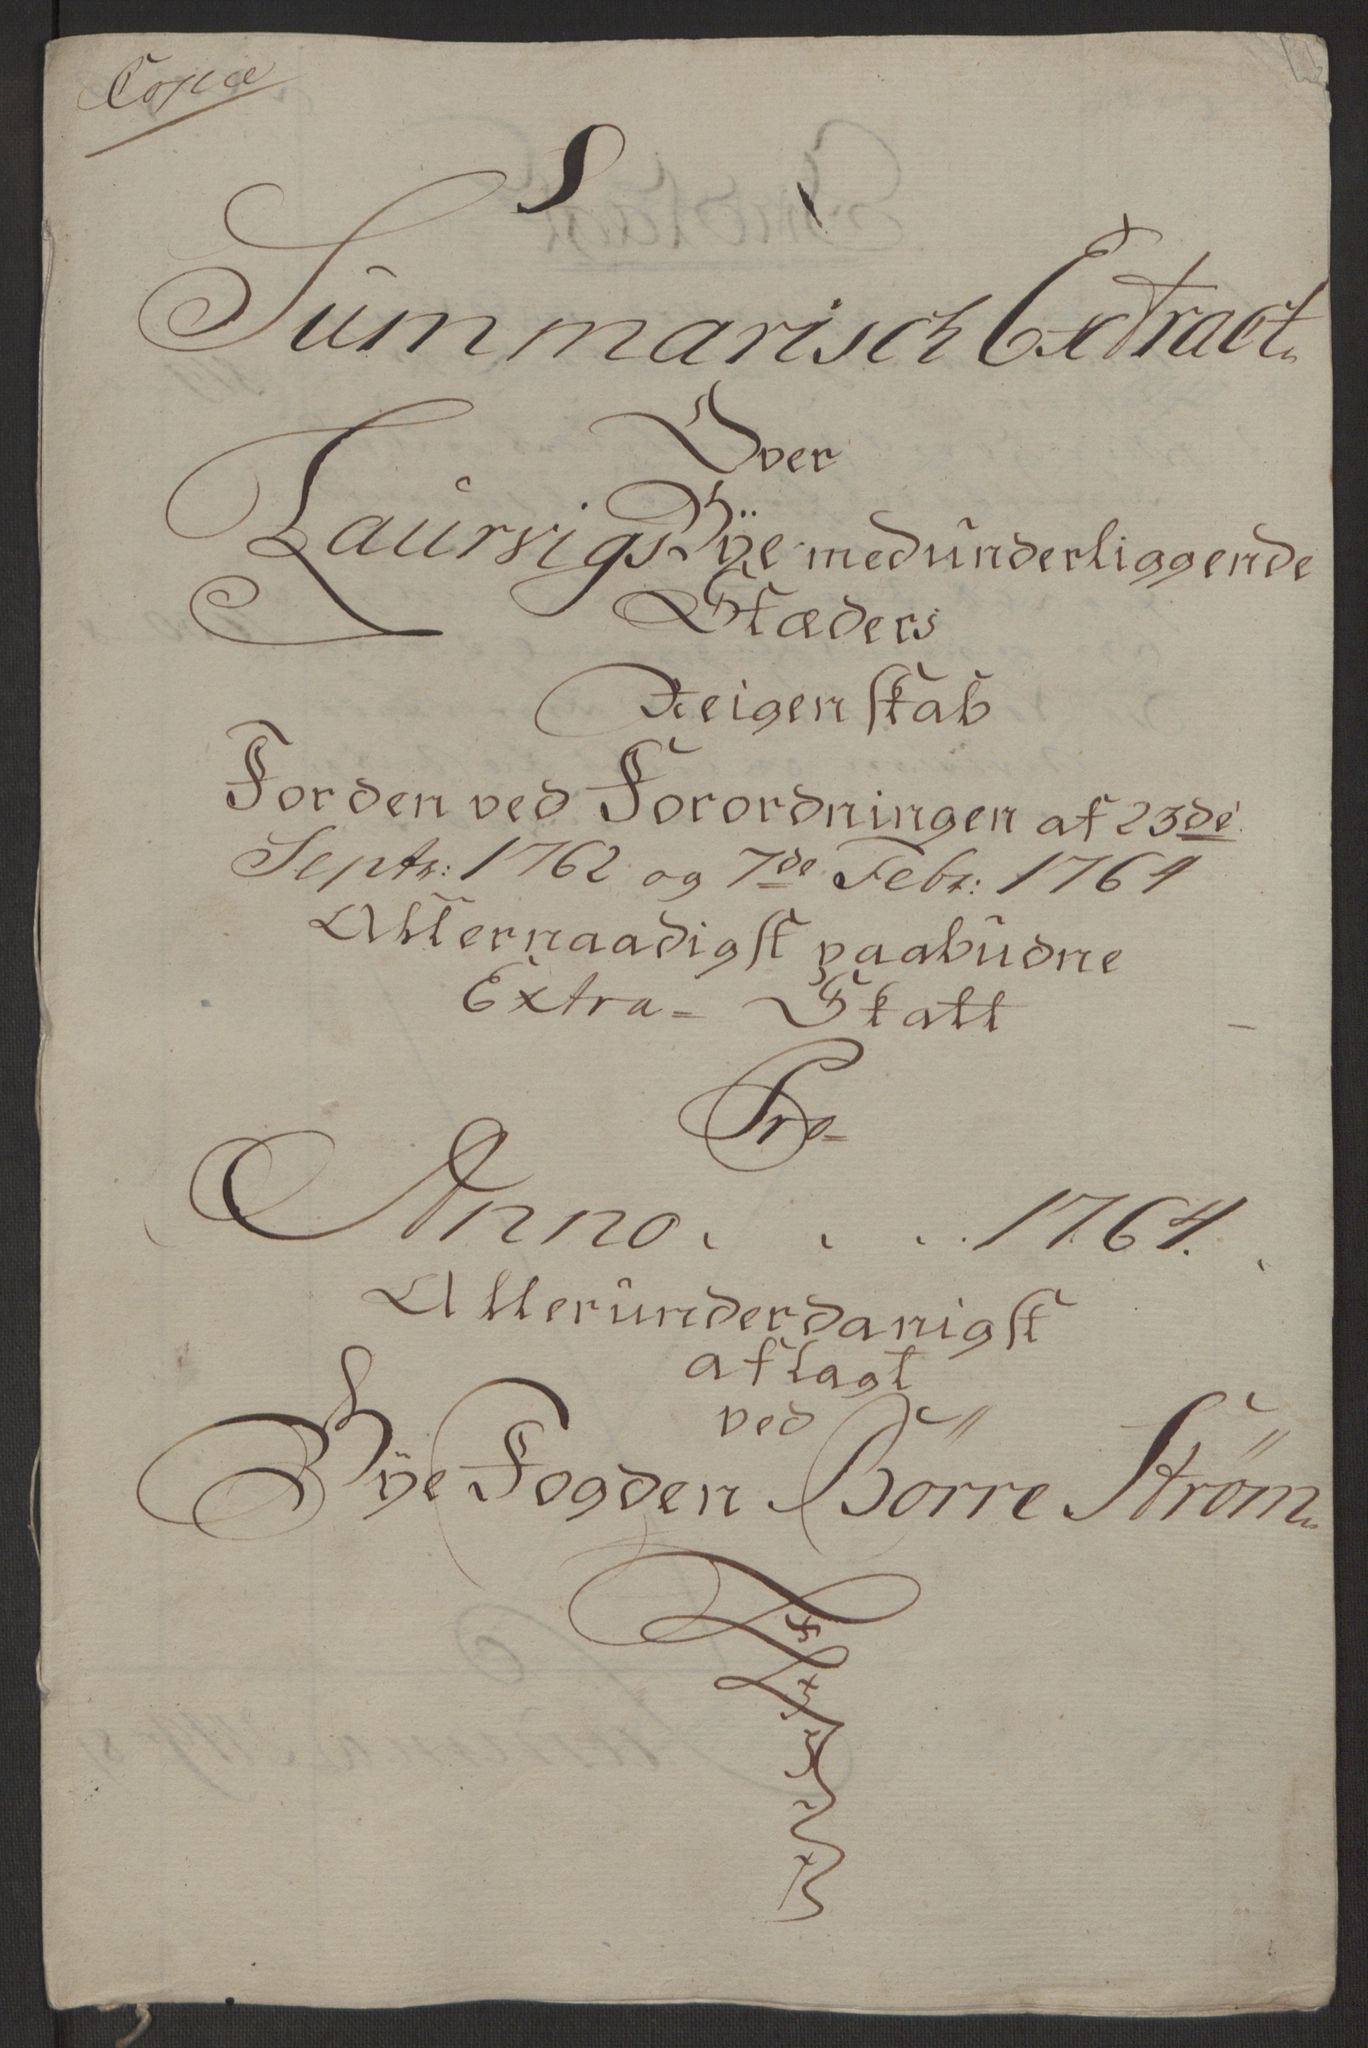 Copie
Summarisch Extract
Over
Laurvigs Bÿe med underliggende
Stæders
Reigenskab
For den ved Forordningen af 23de
Septr: 1762 og 7de Febr: 1764
Allernaadigst paabudne
Extra= Skatt
Pro=
Anno . . . 1764.
Allerunderdanigst
aflagt
ved
Bÿe Fogden Börre Ström